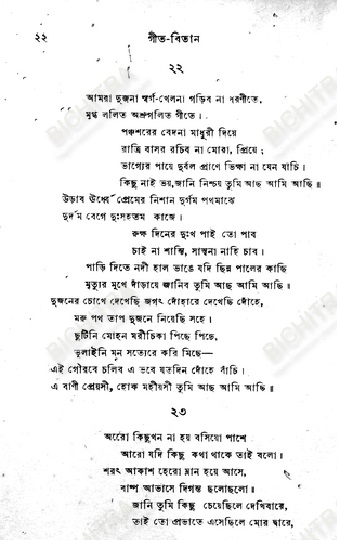 ২২
গীত-বিতান
২২
আমরা দুজনা স্বর্গ-খেলনা গড়িব না ধরণীতে,
মুগ্ধ ললিত অশ্রুগলিত গীতে।
পঞ্চশরের বেদনা মাধুরী দিয়ে
রাত্রি বাসর রচিব না মোরা, প্রিয়ে;
ভাগ্যের পায়ে দুর্বল প্রাণে ভিক্ষা না যেন যাচি।
কিছু নাই ভয়, জানি নিশ্চয় তুমি আছ আমি আছি॥
উড়াব ঊর্ধ্বে প্রেমের নিশান দুর্গম পথমাঝে
দুর্দম বেগে দুঃসহতম কাজে।
রুক্ষ দিনের দুঃখ পাই তো পাব
চাই না শান্তি, সান্ত্বনা নাহি চাব।
পাড়ি দিতে নদী হাল ভাঙে যদি ছিন্ন পালের কাছি
মৃত্যুর মুখে দাঁড়ায়ে জানিব তুমি আছ আমি আছি॥
দুজনের চোখে দেখেছি জগৎ, দোঁহারে দেখেছি দোঁহে,
মরু পথ তাপ দুজনে নিয়েছি সহে।
ছুটিনি মোহন মরীচিকা পিছে পিছে,
ভুলাইনি মন সত্যেরে করি মিছে—
এই গৌরবে চলিব এ ভবে যতদিন দোঁহে বাঁচি।
এ বাণী প্রেয়সী, হোক মহীয়সী তুমি আছ আমি আছি॥
২৩
আরো কিছুখন না হয় বসিয়ো পাশে
আরো যদি কিছু কথা থাকে তাই বলো।
শরৎ আকাশ হেরো ম্লান হয়ে আসে,
বাষ্প আভাসে দিগন্ত ছলোছলো।
জানি তুমি কিছু চেয়েছিলে দেখিবারে,
তাই তো প্রভাতে এসেছিলে মোর দ্বারে,
BICHITRA